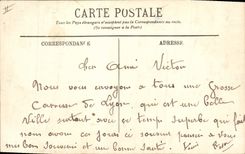 CARTE POSTALE
Tous les Pays étrangers n'acceptent pas la Correspondance au recto.
(Se renseigner à la Poste)
CORRESPONDANCE
ADRESSE
Cher Ami Victor
Nous vous envoyons à tous une Grosse
Caresse de Lyon, qui est une belle
Ville surtout avec ce temps superbe que
nous avons ces jours ci
mes bon souvenir et un bonne santé.